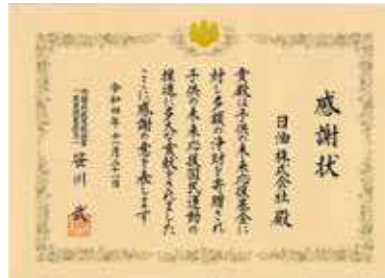 感謝状
日油株式会社 殿
貴殿は子供の未来応援基金に
対し多額の浄財を寄贈され
子供の未来応援国民運動の
推進に多大な貢献をされました
ここに感謝の意を表します
令和四年 十一月二十一日
笹川 武